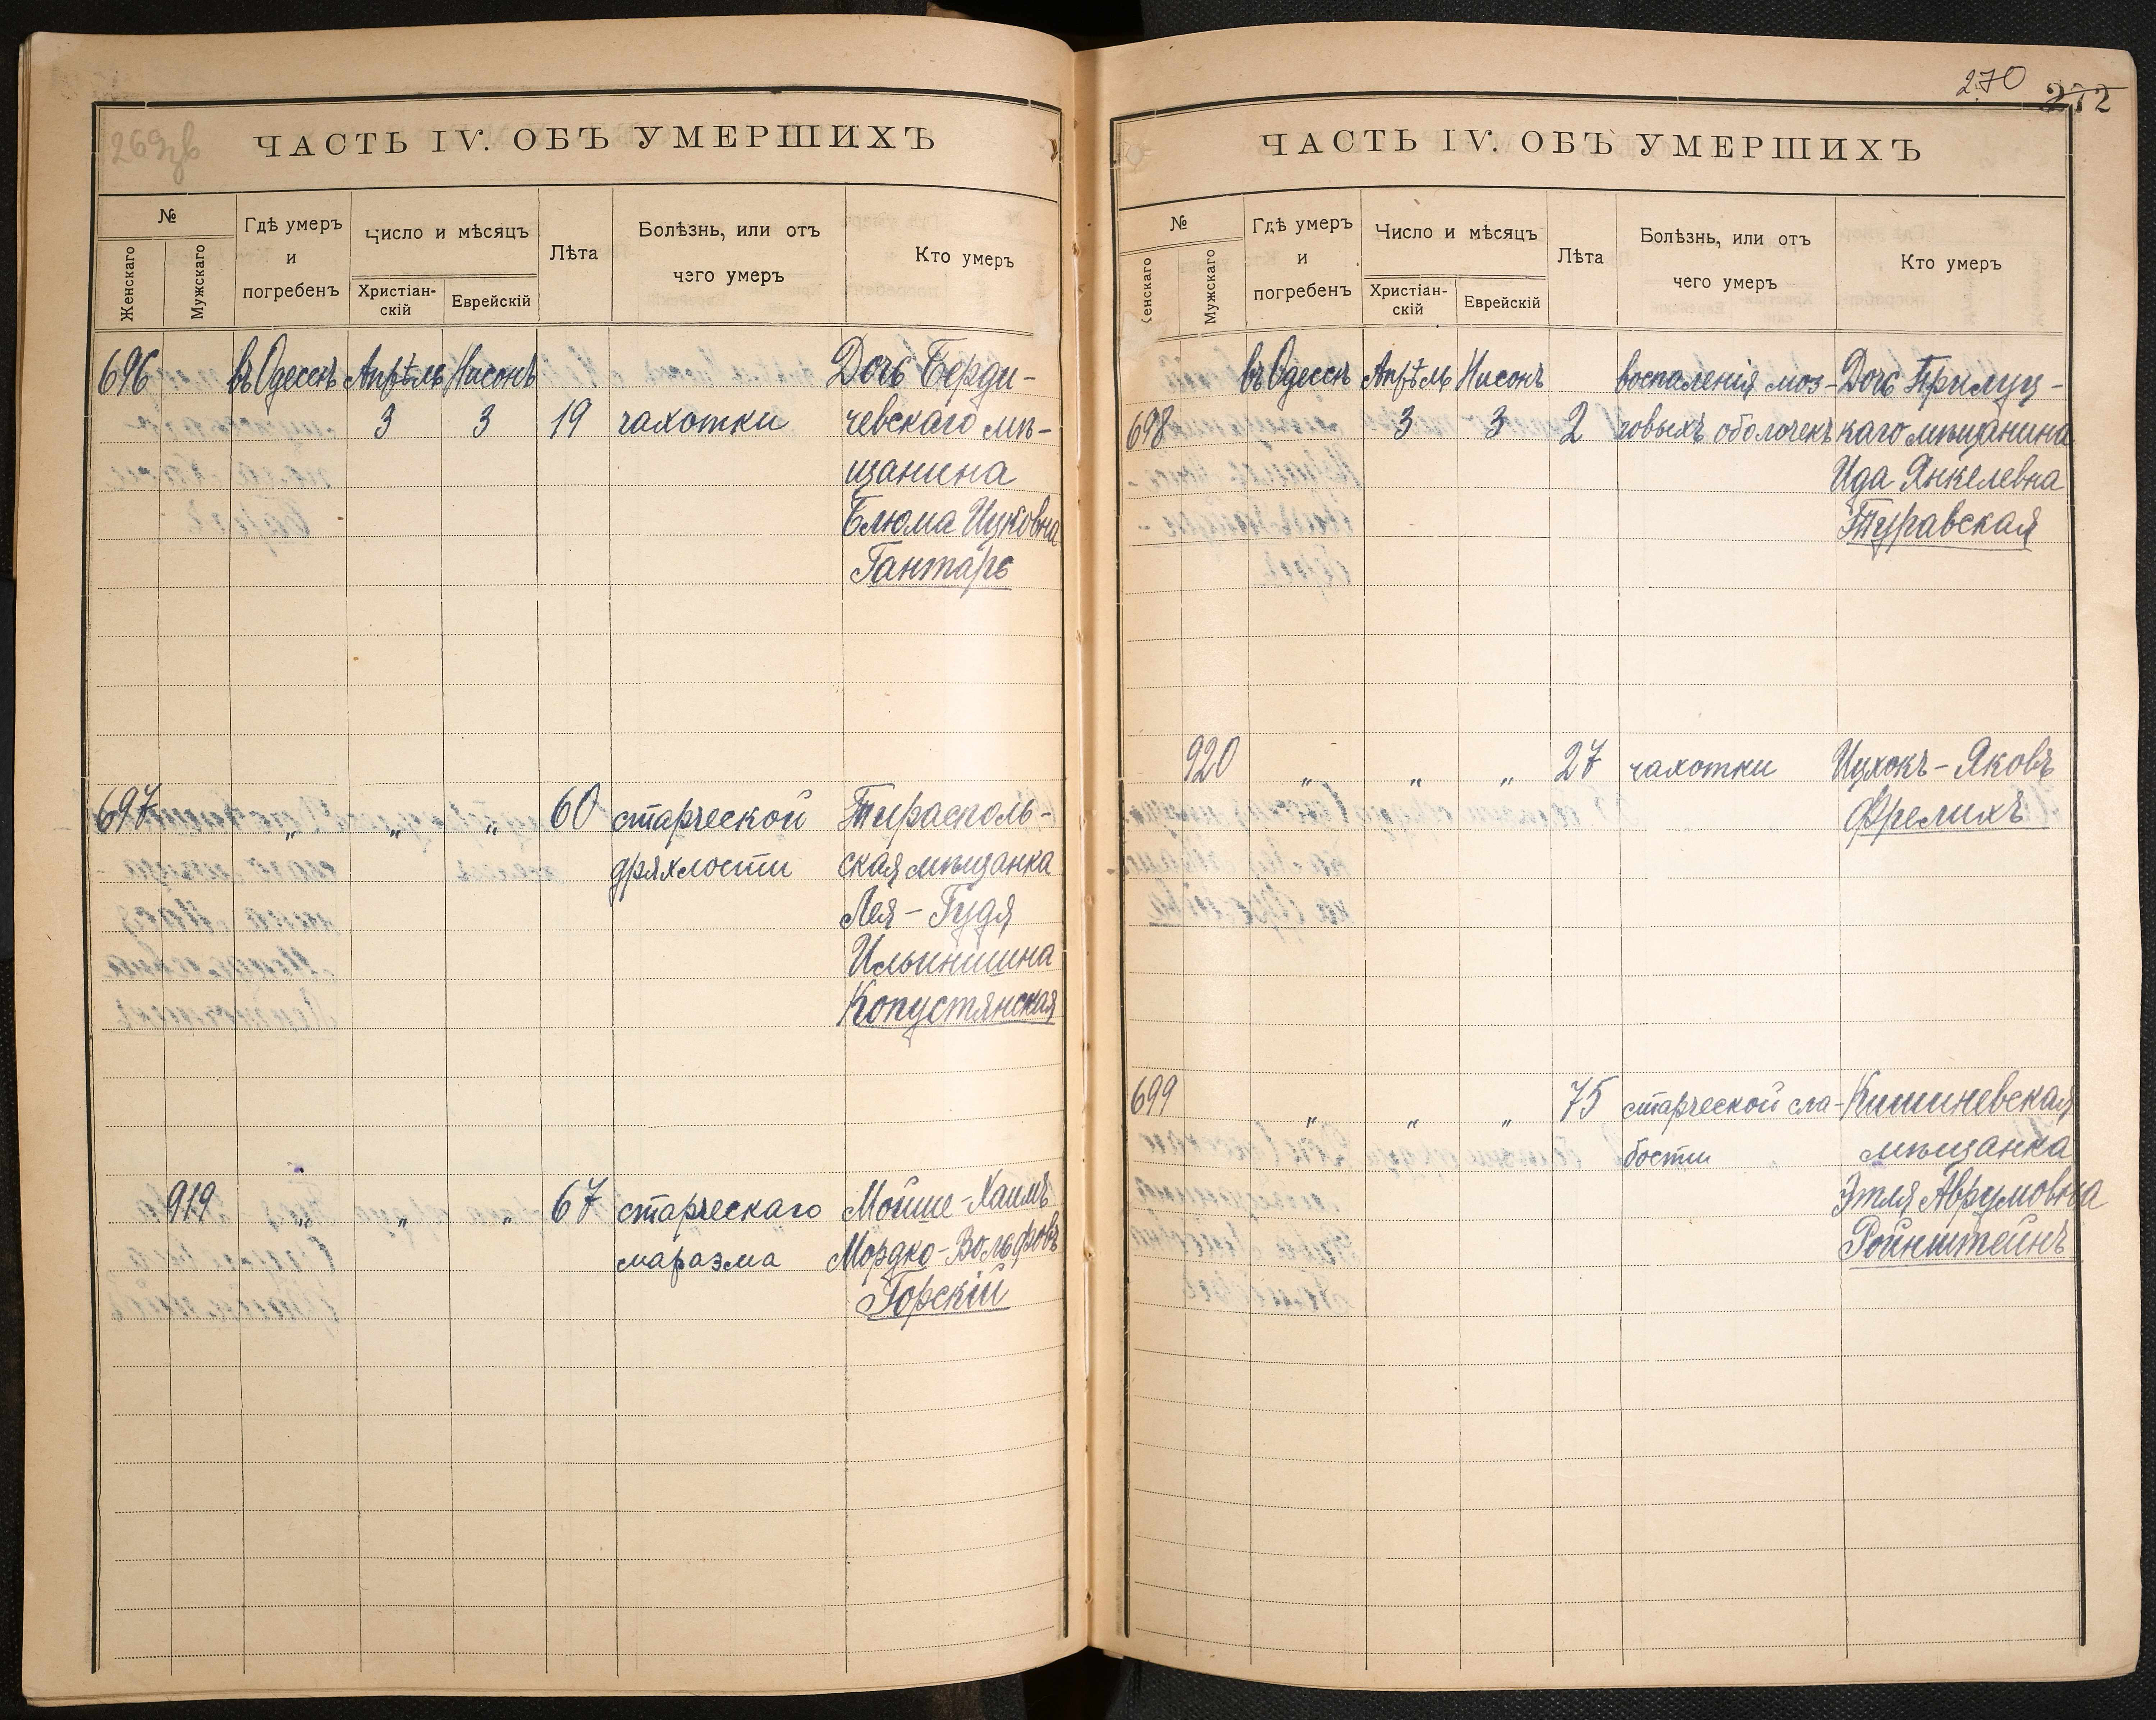 269зв
ЧАСТЬ IV. ОБЪ УМЕРШИХЪ
№
Женскаго
Мужскаго
Гдѣ умеръ
и
погребенъ
Число и мѣсяцъ
Христіан-
скій
Еврейскій
Лѣта
Болѣзнь, или отъ
чего умеръ
Кто умеръ
696 въ Одессѣ Апрѣль Нисонъ Дочь Берди-
3 3 19 чахотки чевскаго мѣ-
щанина
Блюма Ицковна
Гантарь
697 " " " 60 старческой Тирасполь-
дряхлости ская мѣщанка
Лея-Гудя
Ильинишна
Копустянская
919 " " " 67 старческаго Мойше-Хаимъ
маразма Мордко-Вольфовъ
Горскій
270
272
ЧАСТЬ IV. ОБЪ УМЕРШИХЪ
№
Женскаго
Мужскаго
Гдѣ умеръ
и
погребенъ
Число и мѣсяцъ
Христіан-
скій
Еврейскій
Лѣта
Болѣзнь, или отъ
чего умеръ
Кто умеръ
въ Одессѣ Апрѣль Нисонъ воспаленія моз- Дочь Прилуц-
698 3 3 2 говыхъ оболочекъ каго мѣщанина
Ида Янкелевна
Туравская
920 " " " 27 чахотки Ицхокъ-Яковъ
Фрелихъ
699 " " " 75 старческой сла- Кишиневская
бости мѣщанка
Этля Аврумовна
Ройнштейнъ